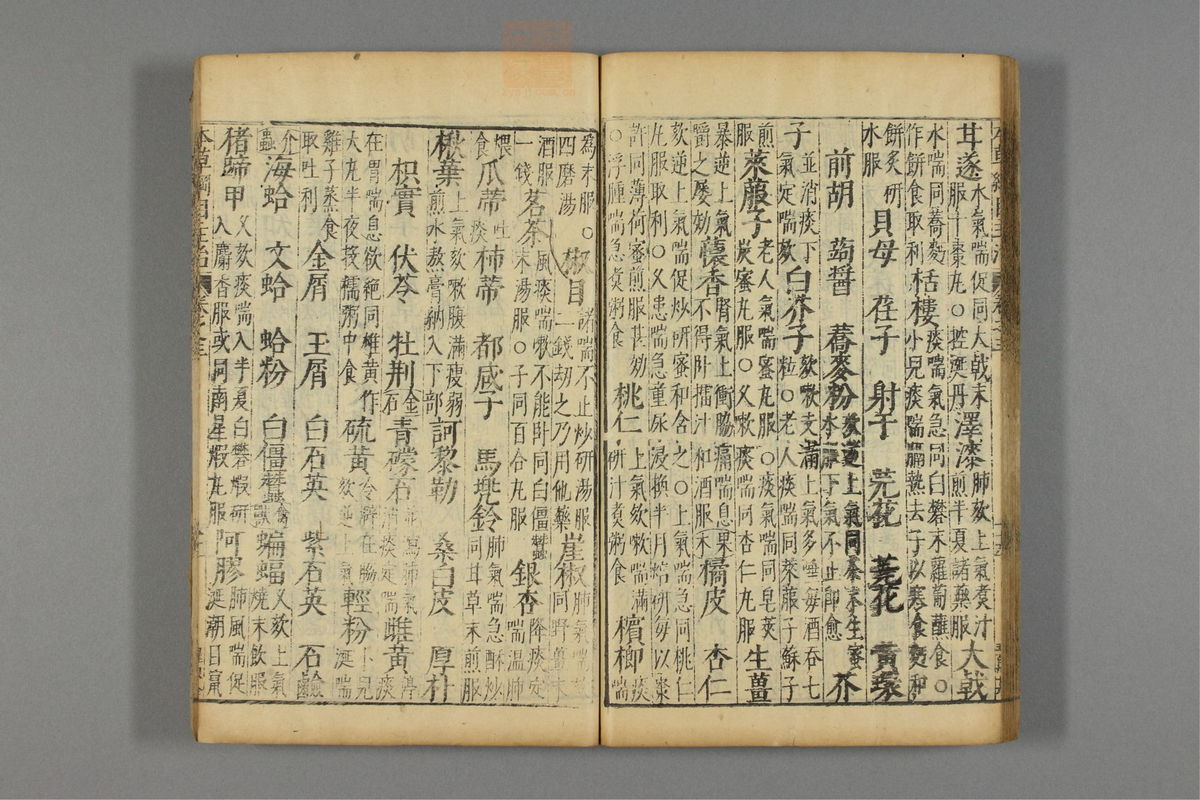 甘遂水氣喘促同大戟末
服十棗丸○控涎丹澤漆肺欬上氣煮汁
煎半夏諸藥服大戟
水喘同蕎麪
作餅食取利栝樓痰喘氣急同白礬末蘿蔔蘸食○
小兒痰喘膈熱去子以寒食麪和
餅炙研
水服 貝母 荏子 射干 芫花 蕘花 黃環
前胡 蒟醬 蕎麥粉欬逆上氣同茶末生蜜
水服下氣不止即愈 芥
子並消痰下
氣定喘欬白芥子欬嗽支滿上氣多唾每酒吞七
粒○老人痰喘同萊菔子蘇子
煎
服萊菔子老人氣喘蜜丸服○痰氣喘同皂莢
炭蜜丸服○又嗽痰喘同杏仁丸服生薑
暴逆上氣
嚼之屢効蘹香腎氣上衝脇痛喘息
不得卧擂汁和酒服果橘皮 杏仁
欬逆上氣喘促炒研蜜和含之○上氣喘急同桃仁
丸服取利○又患喘急童尿浸換半月焙研每以棗
許同薄荷蜜煎服甚効
○浮腫喘急煮粥食桃仁上氣欬嗽喘滿
研汁煮粥食檳榔痰喘
爲末服○
四磨湯 椒目諸喘不止炒研湯服
二錢劫之乃用他藥崖椒肺氣喘欬
同野薑末
酒服
一錢茗茶風痰喘嗽不能卧同白僵
蠶末湯服○子同百合丸服銀杏降痰定
喘溫肺
煨
食瓜蒂吐
痰柿蒂 都咸子 馬兜鈴肺氣喘急酥炒
同甘草末煎服
楸葉上氣欬嗽腹滿瘦弱
煎水熬膏納入下部訶黎勒 桑白皮 厚朴
枳實 伏苓 牡荆金
石青礞石並瀉肺氣
消痰定喘雌黃停痰
在胃喘息欲絕同雄黃作
大丸半夜投糯粥中食硫黃冷澼在脇
欬逆上氣輕粉小兒
涎喘
雞子蒸食
取吐利 金屑 玉屑 白石英 紫石英 石鹼
介
蟲海蛤 文蛤 蛤粉 白僵蠶禽
獸蝙蝠久欬上氣
燒末飲服
猪蹄甲久欬痰喘入半夏白礬煆研
入麝香服或同南星煆丸服阿膠肺風喘促
涎潮目竄